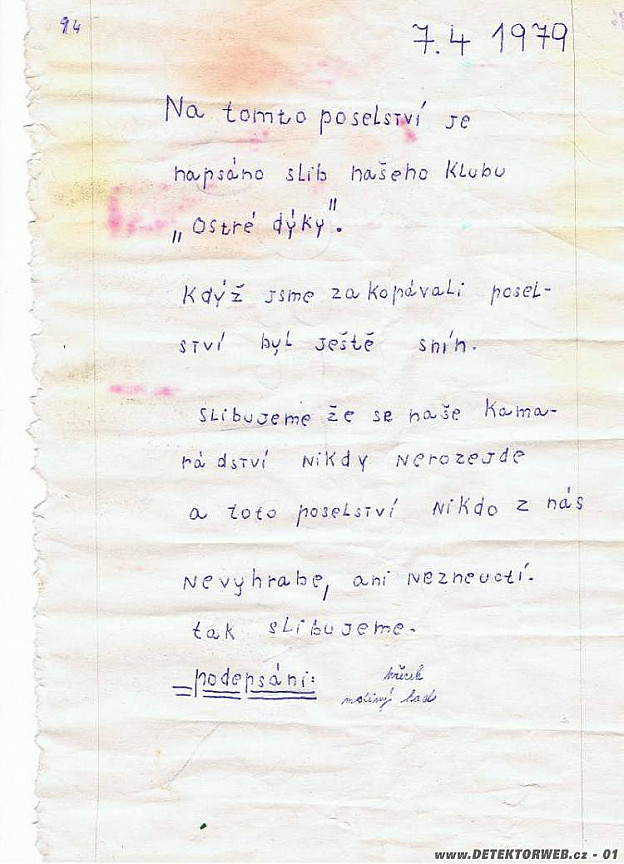 94
7.4 1979
Na tomto poselství je
napsáno slib našeho klubu
„Ostré dýky".
Když jsme zakopávali posel-
ství byl ještě snín.
slibujeme že se naše kama-
rádství nikdy nerozejde
a toto poselství nikdo z nás
nevyhrabe, ani nezneuctí.
tak slibujeme.
=podepsáni: křeček
had
www.DETEKTORWEB.cz - 01